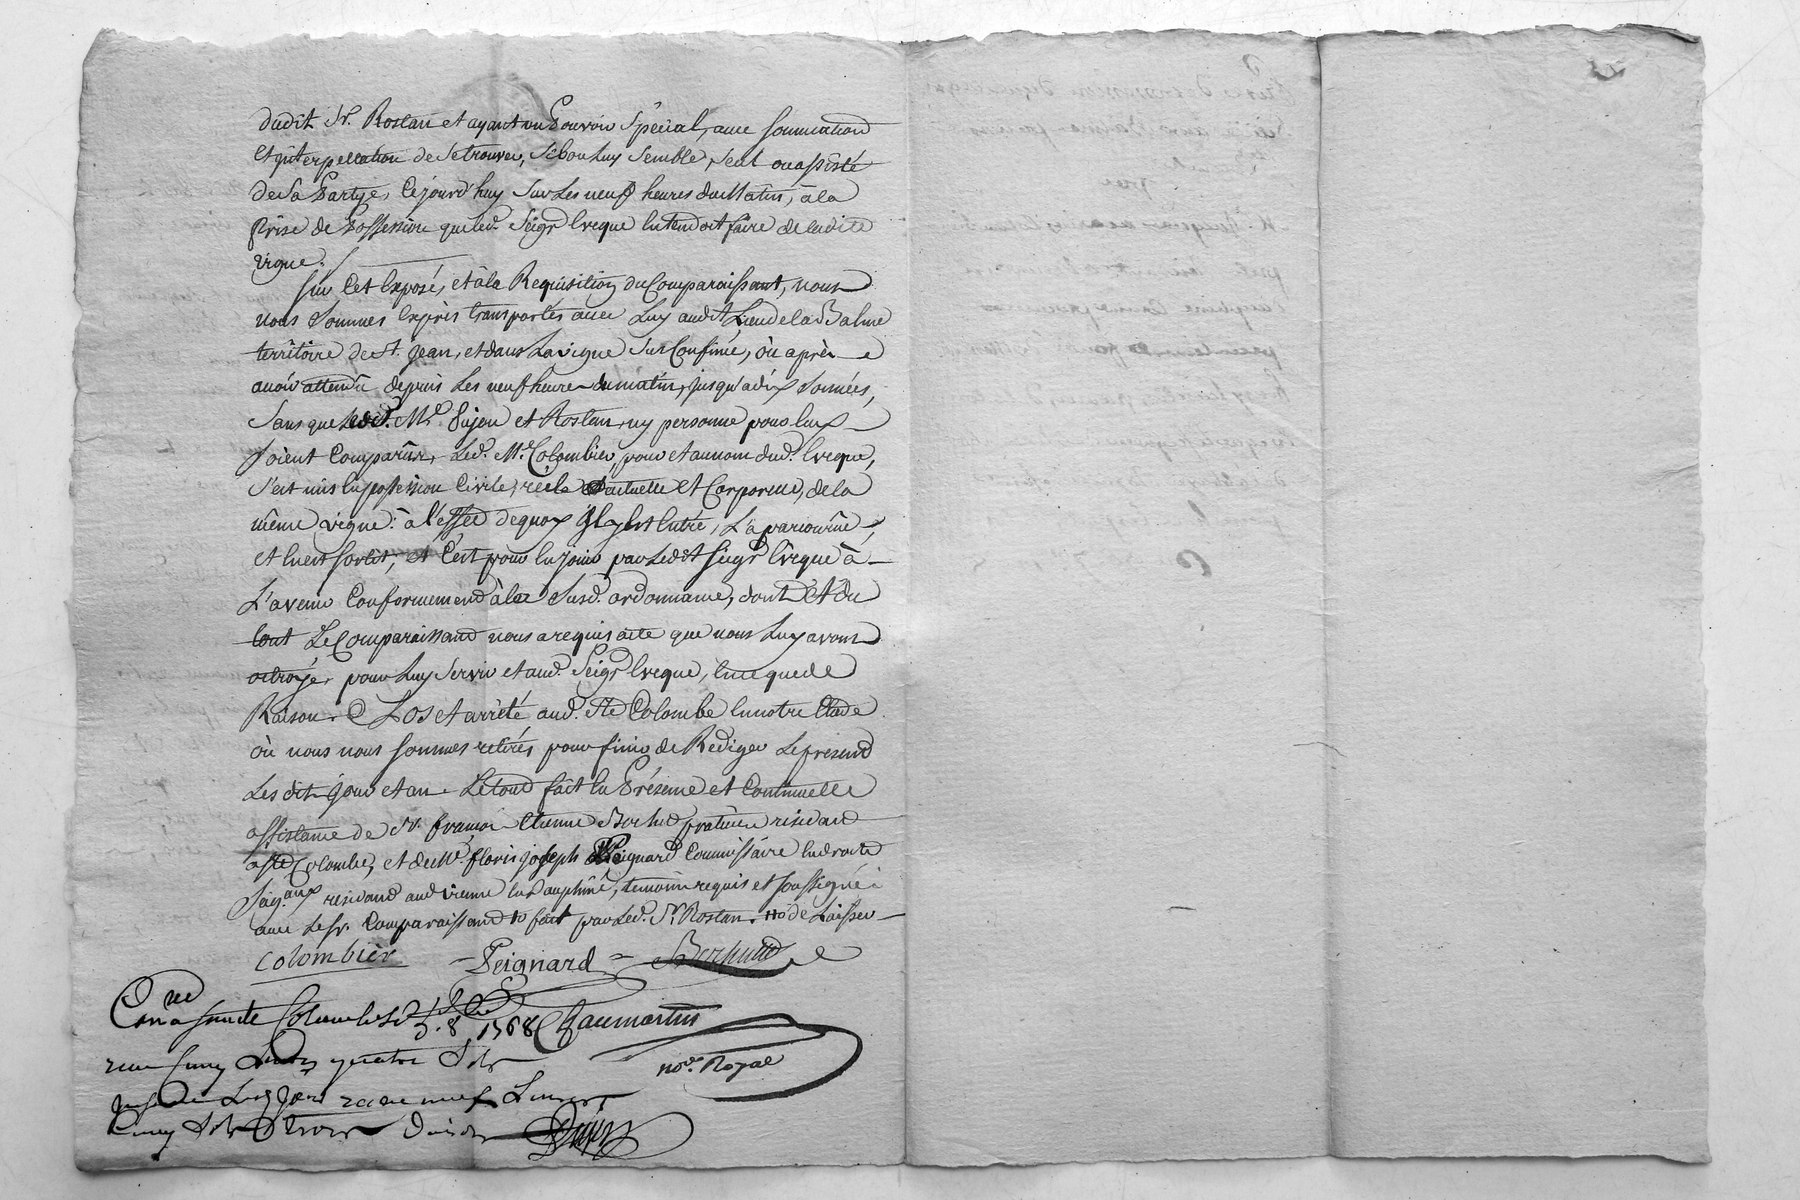 dudit Sr. Rostan et ayant un Pouvoir Spécial, avec sommation
et interpellation de se trouver, si bon luy semble, seul ou assisté
de sa Partye, cejourd'huy sur les neuf heures du matin, à la
Prise de Possession que led. Seigr Eveque entendoit faire de ladite
vigne.
Sur cet Exposé, et à la Requisition du Comparaissant, nous
nous sommes Exprès transportés avec Luy audit Lieu de la Balme
territoire de St. Jean, et dans la vigne sus Confinée, où après
avoir attendu depuis les neuf heures du matin, jusqu'à dix sonnées,
sans que lesd. Me. Pujon et Rostan, ny personne pour Eux
soient Comparûs, led. Me. Colombier, pour et au nom dud. Eveque,
s'est mis en possession Civile, réele actuelle et Corporelle, de la
même vigne: à l'effet de quoy Il y est Entré, L'a parcourûe,
et en est sortit, et C'est pour en jouir par ledit Seigr Evêque à
L'avenir Conformement à la susd. ordonnance, dont et du
tout Le Comparaissant nous a requis acte que nous Luy avons
octroyé, pour Luy servir et aud. Seigr Eveque, En ce que de
Raison. Clos et arrêté aud. Ste Colombe En notre Etude
où nous nous sommes retirés pour finir de Rediger Le present
Les dit jour et an. Le tout fait En Présence et Continuelle
assistance de Sr. françois Etienne praticien residant
à Ste Colombe, et de Me. floris joseph Peignard Commissaire En droits
Seig.aux residant aud Vienne En Dauphiné, temoins requis et soussignés
avec Le sr. Comparaissant fait par led. Sr Rostan de Laisser
Colombier Peignard
Con a Sainte Colombe 1768 Chaumartin
no.re Royal
quatre sols
neuf Livres
Cinq sols